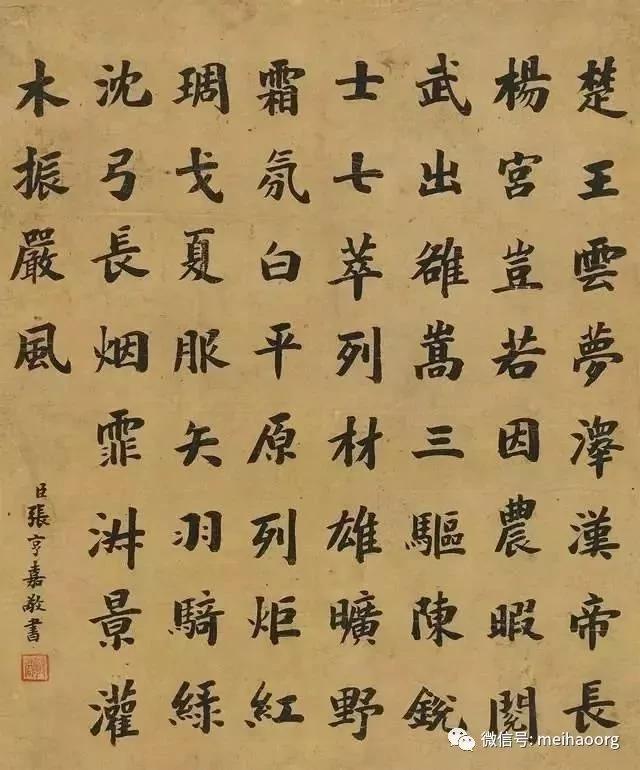 楚王雲夢澤漢帝長
楊宮豈若因農暇閱
武出雒嵩三驅陳銳
士七萃列材雄曠野
霜氛白平原列炬紅
琱戈夏服矢羽騎綠
沈弓長烟霏景灌
木振嚴風
臣張亨嘉敬書
微信号: meihaoorg